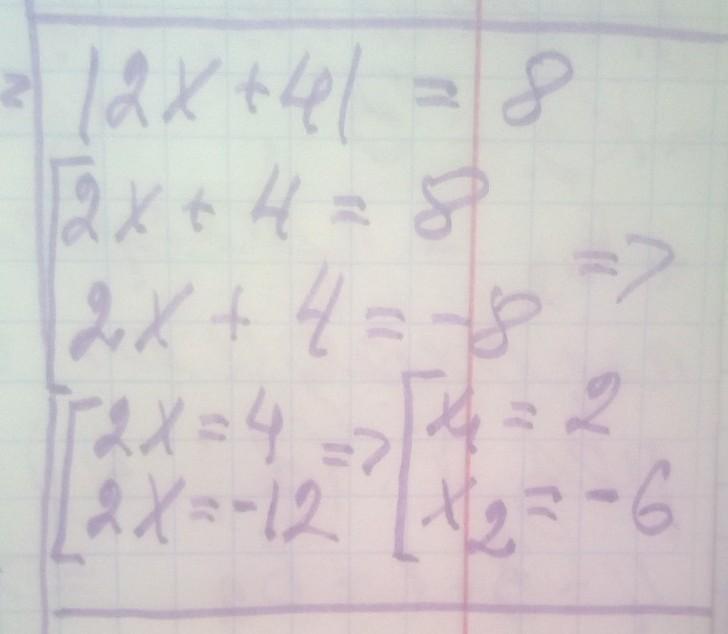 |2x+4| = 8
[2x + 4 = 8
2x + 4 = -8 =>
[2x = 4 => [x₁ = 2
2x = -12 x₂ = -6